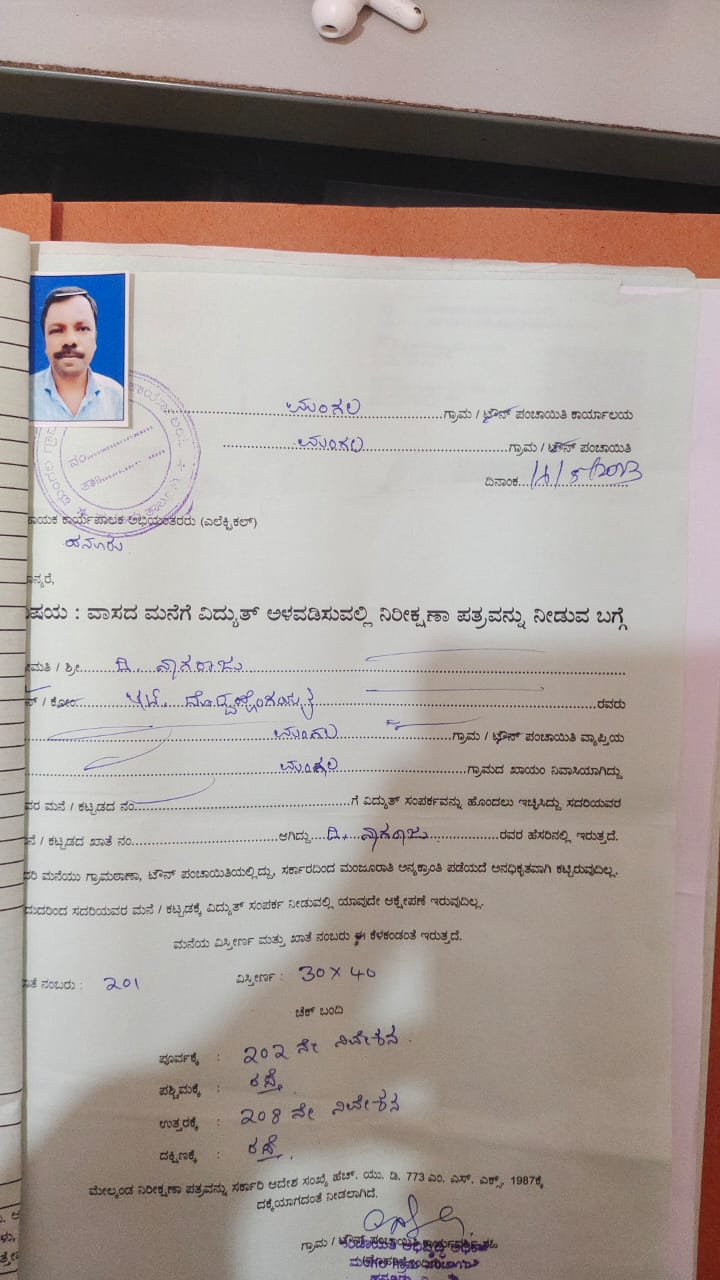 ಮಂಗಲ ಗ್ರಾಮ / ಟೌನ್ ಪಂಚಾಯಿತಿ ಕಾರ್ಯಾಲಯ
ಮಂಗಲ ಗ್ರಾಮ / ಟೌನ್ ಪಂಚಾಯಿತಿ
ದಿನಾಂಕ
ಕಾರ್ಯಪಾಲಕ ಅಭಿಯಂತರರು (ಎಲೆಕ್ಟ್ರಿಕಲ್)
ಹನೂರು
ನ್ಯರೆ,
ಷಯ : ವಾಸದ ಮನೆಗೆ ವಿದ್ಯುತ್ ಅಳವಡಿಸುವಲ್ಲಿ ನಿರೀಕ್ಷಣಾ ಪತ್ರವನ್ನು ನೀಡುವ ಬಗ್ಗೆ
ಮತಿ / ಶ್ರೀ ಡಿ. ನಾಗರಾಜು
ನ್ / ಕೋಂ ರವರು
ಮಂಗಲ ಗ್ರಾಮ / ಟೌನ್ ಪಂಚಾಯಿತಿ ವ್ಯಾಪ್ತಿಯ
ಮಂಗಲ ಗ್ರಾಮದ ಖಾಯಂ ನಿವಾಸಿಯಾಗಿದ್ದು
ವರ ಮನೆ / ಕಟ್ಟಡದ ನಂ ಗೆ ವಿದ್ಯುತ್ ಸಂಪರ್ಕವನ್ನು ಹೊಂದಲು ಇಚ್ಛಿಸಿದ್ದು ಸದರಿಯವರ
ನೆ / ಕಟ್ಟಡದ ಖಾತೆ ನಂ ಆಗಿದ್ದು ಡಿ. ನಾಗರಾಜು ರವರ ಹೆಸರಿನಲ್ಲಿ ಇರುತ್ತದೆ.
ರಿ ಮನೆಯು ಗ್ರಾಮಠಾಣಾ, ಟೌನ್ ಪಂಚಾಯಿತಿಯಲ್ಲಿದ್ದು, ಸರ್ಕಾರದಿಂದ ಮಂಜೂರಾತಿ ಅನ್ಯಕ್ರಾಂತಿ ಪಡೆಯದೆ ಅನಧಿಕೃತವಾಗಿ ಕಟ್ಟಿರುವುದಿಲ್ಲ.
ದುದರಿಂದ ಸದರಿಯವರ ಮನೆ / ಕಟ್ಟಡಕ್ಕೆ ವಿದ್ಯುತ್ ಸಂಪರ್ಕ ನೀಡುವಲ್ಲಿ ಯಾವುದೇ ಆಕ್ಷೇಪಣೆ ಇರುವುದಿಲ್ಲ.
ಮನೆಯ ವಿಸ್ತೀರ್ಣ ಮತ್ತು ಖಾತೆ ನಂಬರು ಈ ಕೆಳಕಂಡಂತೆ ಇರುತ್ತದೆ.
ತೆ ನಂಬರು : 201 ವಿಸ್ತೀರ್ಣ : 30 × 40
ಚೆಕ್ ಬಂದಿ
ಪೂರ್ವಕ್ಕೆ : 202 ನೇ ನಿವೇಶನ
ಪಶ್ಚಿಮಕ್ಕೆ : ರಸ್ತೆ.
ಉತ್ತರಕ್ಕೆ : ನೇ ನಿವೇಶನ
ದಕ್ಷಿಣಕ್ಕೆ : ರಸ್ತೆ.
ಮೇಲ್ಕಂಡ ನಿರೀಕ್ಷಣಾ ಪತ್ರವನ್ನು ಸರ್ಕಾರಿ ಆದೇಶ ಸಂಖ್ಯೆ ಹೆಚ್. ಯು. ಡಿ. 773 ಎಂ. ಎಸ್. ಎಕ್ಸ್. 1987ಕ್ಕೆ
ದಕ್ಕೆಯಾಗದಂತೆ ನೀಡಲಾಗಿದೆ.
ಗ್ರಾಮ / ಟೌನ್ ಪಂಚಾಯಿತಿ